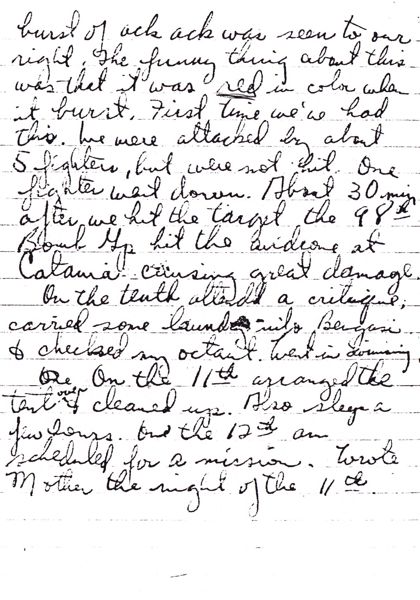 burst of ack ack was seen to our
right. The funny thing about this
was that it was red in color when
it burst. First time we've had
this. We were attacked by about
5 fighters, but were not hit. One
fighter went down. About 30 min
after we hit the target the 98th
Bomb Gp hit the airdrome at
Catania causing great damage.
On the tenth attended a critique,
carried some laundry into Bengasi
& checked my octant. Went in swimming.
On the 11th arranged the
tent over & cleaned up. Also sleep a
few hours. On the 12th am
scheduled for a mission. Wrote
Mother the night of the 11th.